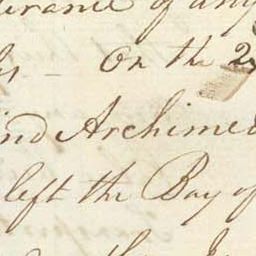 urance of any
— On the 2
ind Archimed
left the Bay of